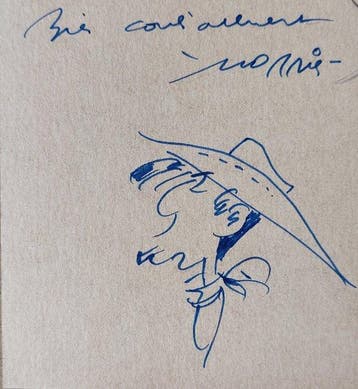 Bien cordialement
Morris